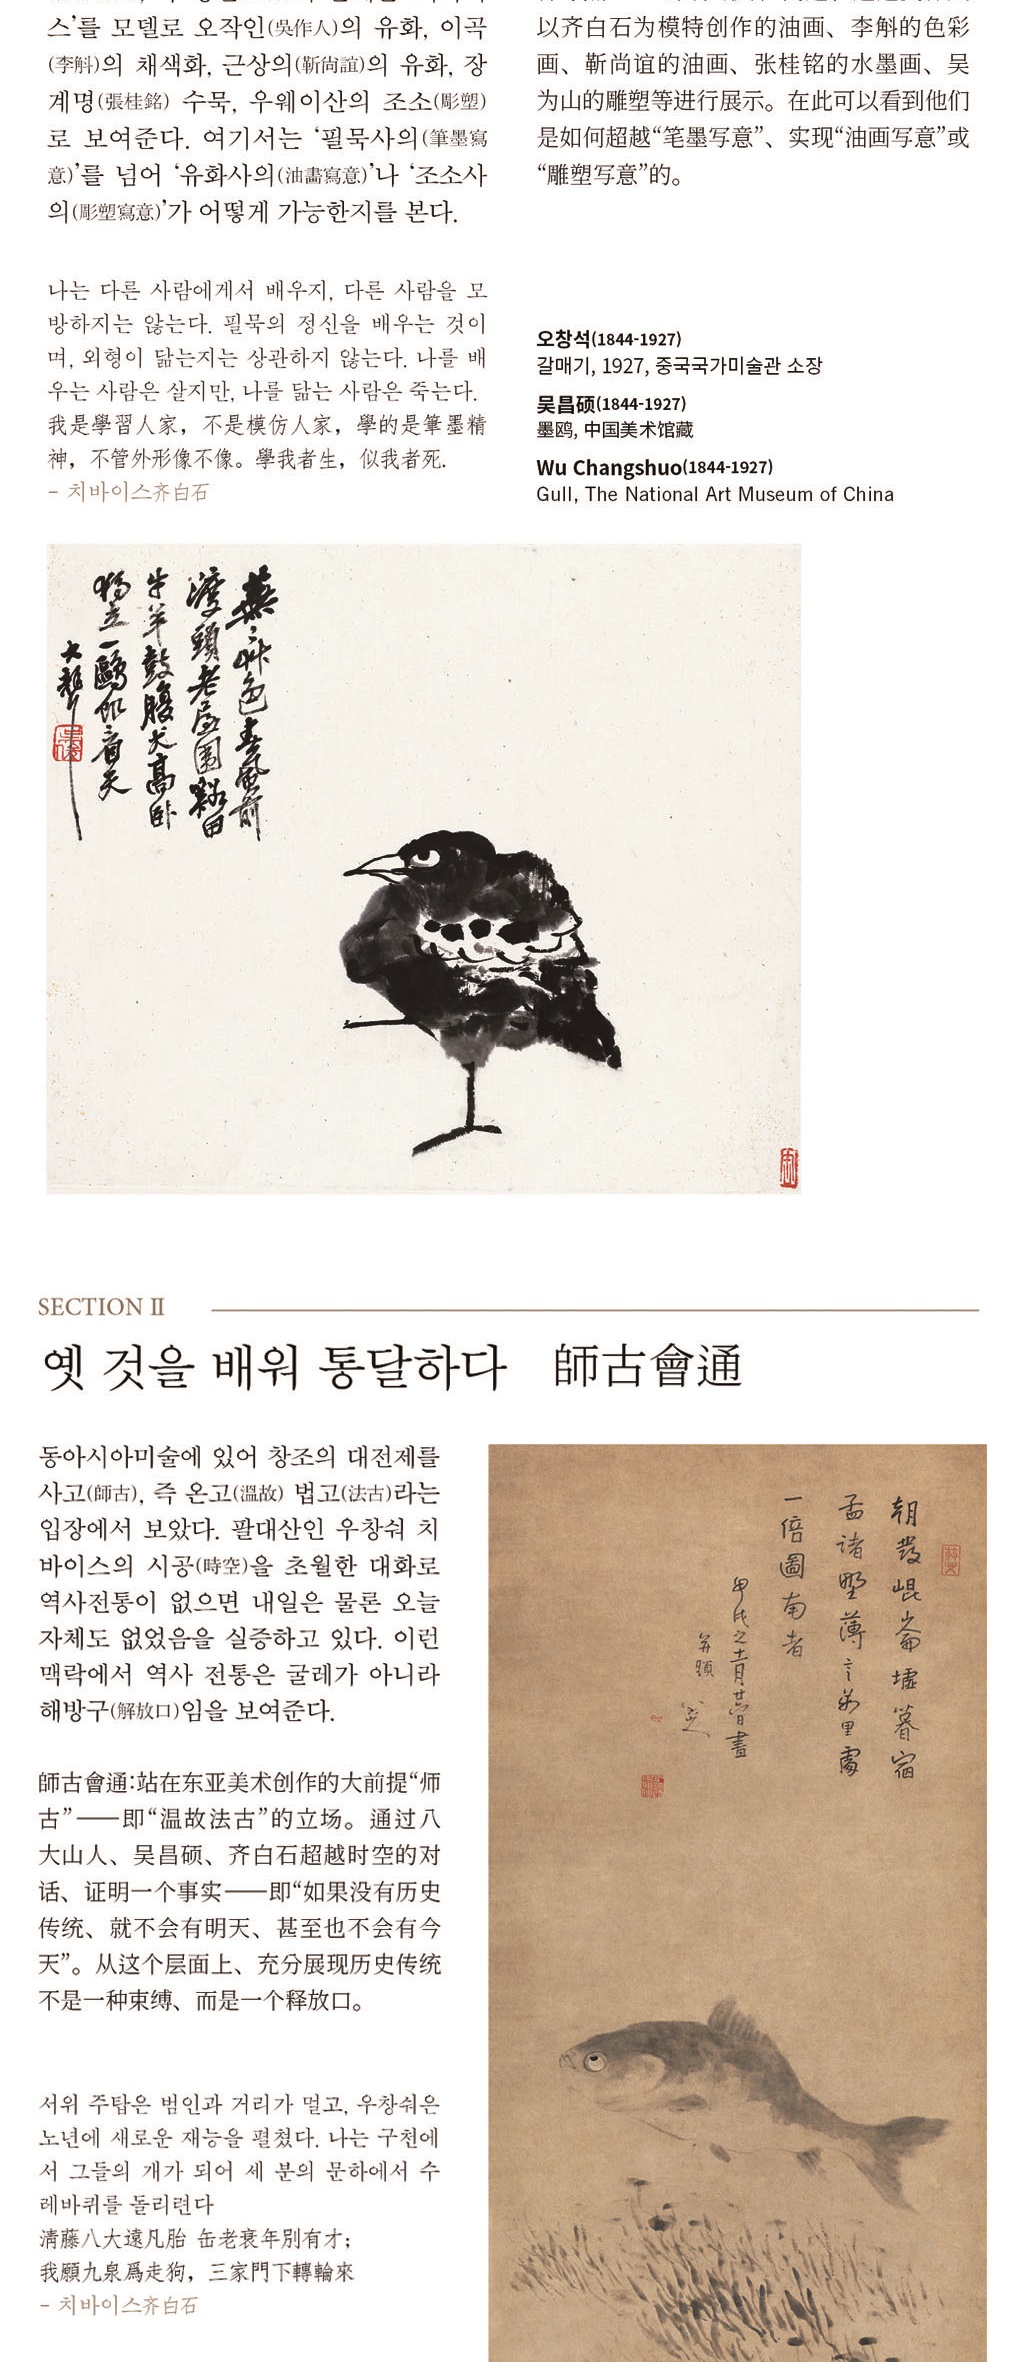 스’를 모델로 오작인(吳作人)의 유화, 이곡
(李斛)의 채색화, 근상의(靳尙誼)의 유화, 장
계명(張桂銘) 수묵, 우웨이산의 조소(彫塑)
로 보여준다. 여기서는 ‘필묵사의(筆墨寫
意)’를 넘어 ‘유화사의(油畵寫意)’나 ‘조소사
의(彫塑寫意)’가 어떻게 가능한지를 본다.
以齐白石为模特创作的油画、李斛的色彩
画、靳尚谊的油画、张桂铭的水墨画、吴
为山的雕塑等进行展示。在此可以看到他们
是如何超越“笔墨写意”、实现“油画写意”或
“雕塑写意”的。
나는 다른 사람에게서 배우지, 다른 사람을 모
방하지는 않는다. 필묵의 정신을 배우는 것이
며, 외형이 닮는지는 상관하지 않는다. 나를 배
우는 사람은 살지만, 나를 닮는 사람은 죽는다.
我是學習人家，不是模仿人家，學的是筆墨精
神，不管外形像不像。學我者生，似我者死.
- 치바이스齐白石
오창석(1844-1927)
갈매기, 1927, 중국국가미술관 소장
吴昌硕(1844-1927)
墨鸥, 中国美术馆藏
Wu Changshuo(1844-1927)
Gull, The National Art Museum of China
草色春風前
渡頭老屋圍谿田
牛羊鼓腹犬高卧
獨立一鷗仰看天
大聾
SECTION Ⅱ
옛 것을 배워 통달하다 師古會通
동아시아미술에 있어 창조의 대전제를
사고(師古), 즉 온고(溫故) 법고(法古)라는
입장에서 보았다. 팔대산인 우창숴 치
바이스의 시공(時空)을 초월한 대화로
역사전통이 없으면 내일은 물론 오늘
자체도 없었음을 실증하고 있다. 이런
맥락에서 역사 전통은 굴레가 아니라
해방구(解放口)임을 보여준다.
師古會通:站在东亚美术创作的大前提“师
古”——即“温故法古”的立场。通过八
大山人、吴昌硕、齐白石超越时空的对
话、证明一个事实——即“如果没有历史
传统、就不会有明天、甚至也不会有今
天”。从这个层面上、充分展现历史传统
不是一种束缚、而是一个释放口。
서위 주탑은 범인과 거리가 멀고, 우창숴은
노년에 새로운 재능을 펼쳤다. 나는 구천에
서 그들의 개가 되어 세 분의 문하에서 수
레바퀴를 돌리련다
淸藤八大遠凡胎 缶老衰年別有才；
我願九泉爲走狗，三家門下轉輪來
- 치바이스齐白石
朝發崐崙墟暮宿
孟諸野薄言萬里處
一倍圖南者